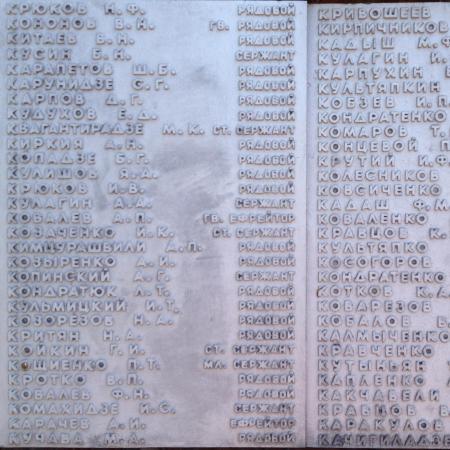 КРЮКОВ Н.Ф. РЯДОВОЙ
КОНОНОВ В.Н. ГВ. РЯДОВОЙ
КИТАЕВ В.Н. РЯДОВОЙ
КУСИН Б.Н. СЕРЖАНТ
КАРАПЕТОВ Ш.Б. РЯДОВОЙ
КАРУНИДЗЕ С.Г. РЯДОВОЙ
КАРПОВ Д.Г. РЯДОВОЙ
КУДУХОВ Е.Д. РЯДОВОЙ
КВАГАНТИРАДЗЕ М.К. СТ. СЕРЖАНТ
КИРКИЯ А.Н. РЯДОВОЙ
КОПАДЗЕ Б.Г. РЯДОВОЙ
КУЛИШОВ Я.А. РЯДОВОЙ
КРЮКОВ И.В. РЯДОВОЙ
КУЛАГИН А.А. СЕРЖАНТ
КОВАЛЕВ А.П. ГВ. ЕФРЕЙТОР
КОЗАЧЕНКО И.К. СТ. СЕРЖАНТ
КИМЦУРАШВИЛИ А.П. РЯДОВОЙ
КОЗЫРЕНКО А.И. РЯДОВОЙ
КОПИНСКИЙ А.Г. СЕРЖАНТ
КОНДРАТЮК Л.Т. РЯДОВОЙ
КУЛЬМИЦКИЙ И.Т. РЯДОВОЙ
КОЗОРЕЗОВ Н.А. РЯДОВОЙ
КРИТЯН Н.А. РЯДОВОЙ
КОЙКИН Г.И. СТ. СЕРЖАНТ
КОШИЕНКО П.Т. МЛ. СЕРЖАНТ
КРОТКО В.П. РЯДОВОЙ
КОВАЛЕВ Ф.Н. РЯДОВОЙ
КОМАХИДЗЕ И.С. СЕРЖАНТ
КАРАЧЕВ А.И. ЕФРЕЙТОР
КУЧАВА М.А. РЯДОВОЙ
КРИВОШЕЕВ
КИРПИЧНИКОВ
КАДЫШ М.Ф
КУЛАГИН И.
КАРПУХИН
КУЛЬТЯПКИН
КОБЗЕВ И.П.
КОНДРАТЕНКО
КОМАРОВ Т.
КОНЦЕВОЙ П
КРУТИЙ И.Ф
КОЛЕСНИКОВ
КОВСИЧЕНКО
КАДАШ Ф.М
КОВАЛЕНКО
КРАВЦОВ К.
КУЛЬТЯПКО
КОСОГОРОВ
КОНДРАТЕНКО
КОТКОВ К.А
КОВАРЕЗОВ
КОБАЛОВ
КАЛМЫЧЕНКО
КРАВЧЕНКО
КУТЫНЬЯН
КАПЛЕНКО
КАКЧАВЕЛИ
КРАВЦОВ В.
КАРАКУЛОВ
КАЧИГИЛАДЗЕ